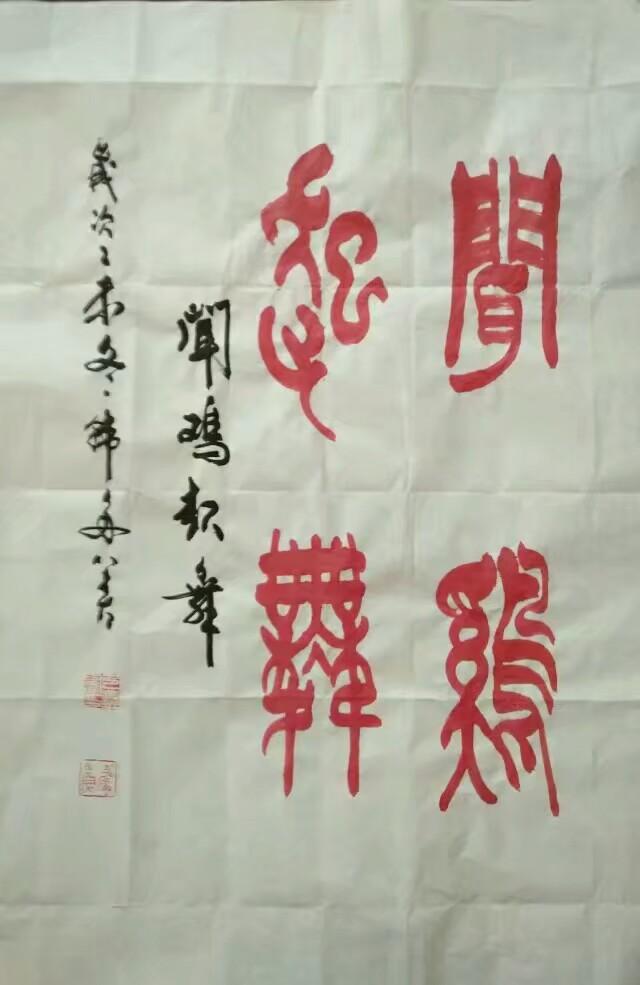 聞雞
起舞
聞鸡起舞
歲次乙未冬